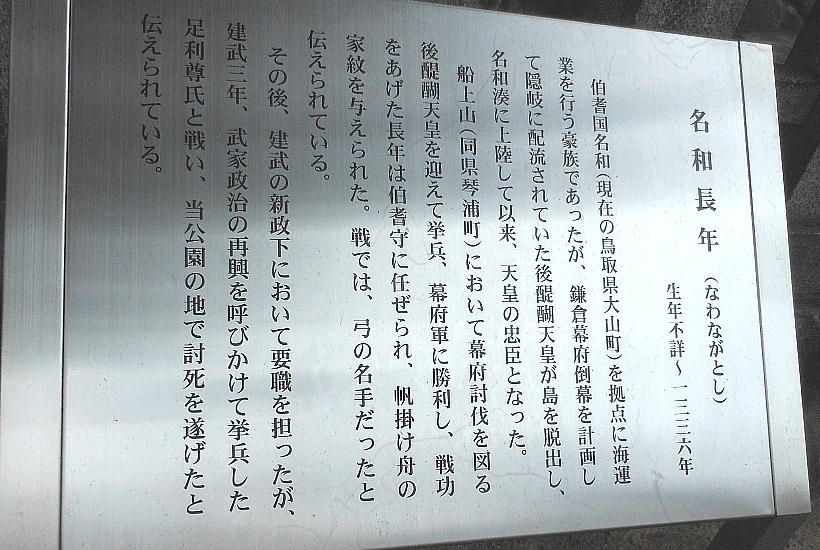 名和長年（なわながとし）
生年不詳～一三三六年
伯耆国名和（現在の鳥取県大山町）を拠点に海運
業を行う豪族であったが、鎌倉幕府倒幕を計画し
て隠岐に配流されていた後醍醐天皇が島を脱出し、
名和湊に上陸して以来、天皇の忠臣となった。
船上山（同県琴浦町）において幕府討伐を図る
後醍醐天皇を迎えて挙兵、幕府軍に勝利し、戦功
をあげた長年は伯耆守に任ぜられ、帆掛け舟の
家紋を与えられた。戦では、弓の名手だったと
伝えられている。
その後、建武の新政下において要職を担ったが、
建武三年、武家政治の再興を呼びかけて挙兵した
足利尊氏と戦い、当公園の地で討死を遂げたと
伝えられている。